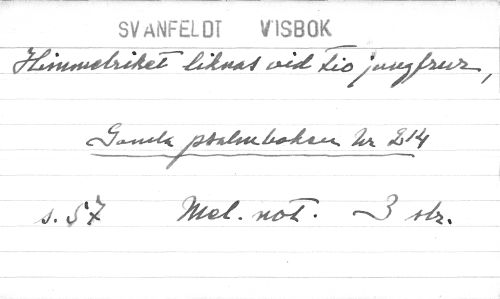 SVANFELDT VISBOK
Himmelriket liknas vid tio jungfrur,
Gamla psalmboken Nr 214
s. 57 Mel. not. 3 str.